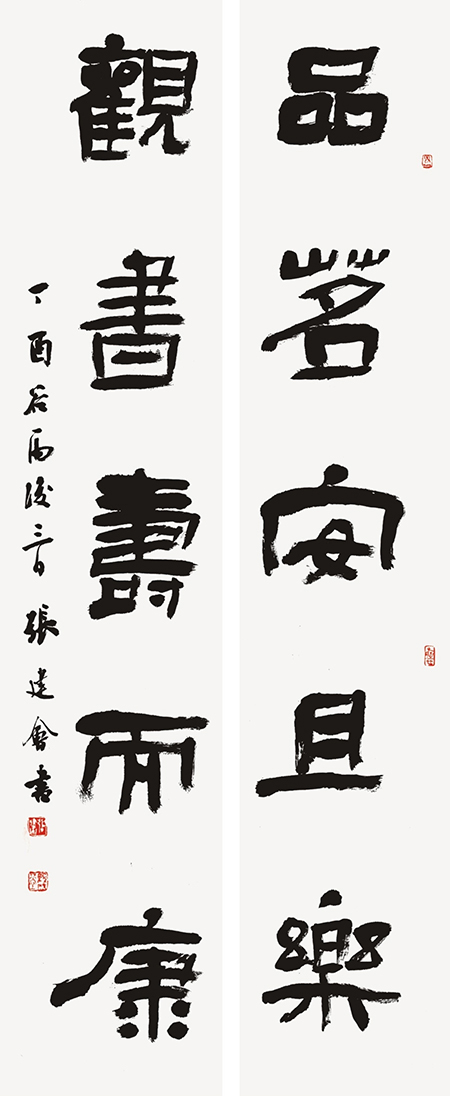 品茗安且樂
觀書壽而康
丁酉谷雨後三日 張建會書